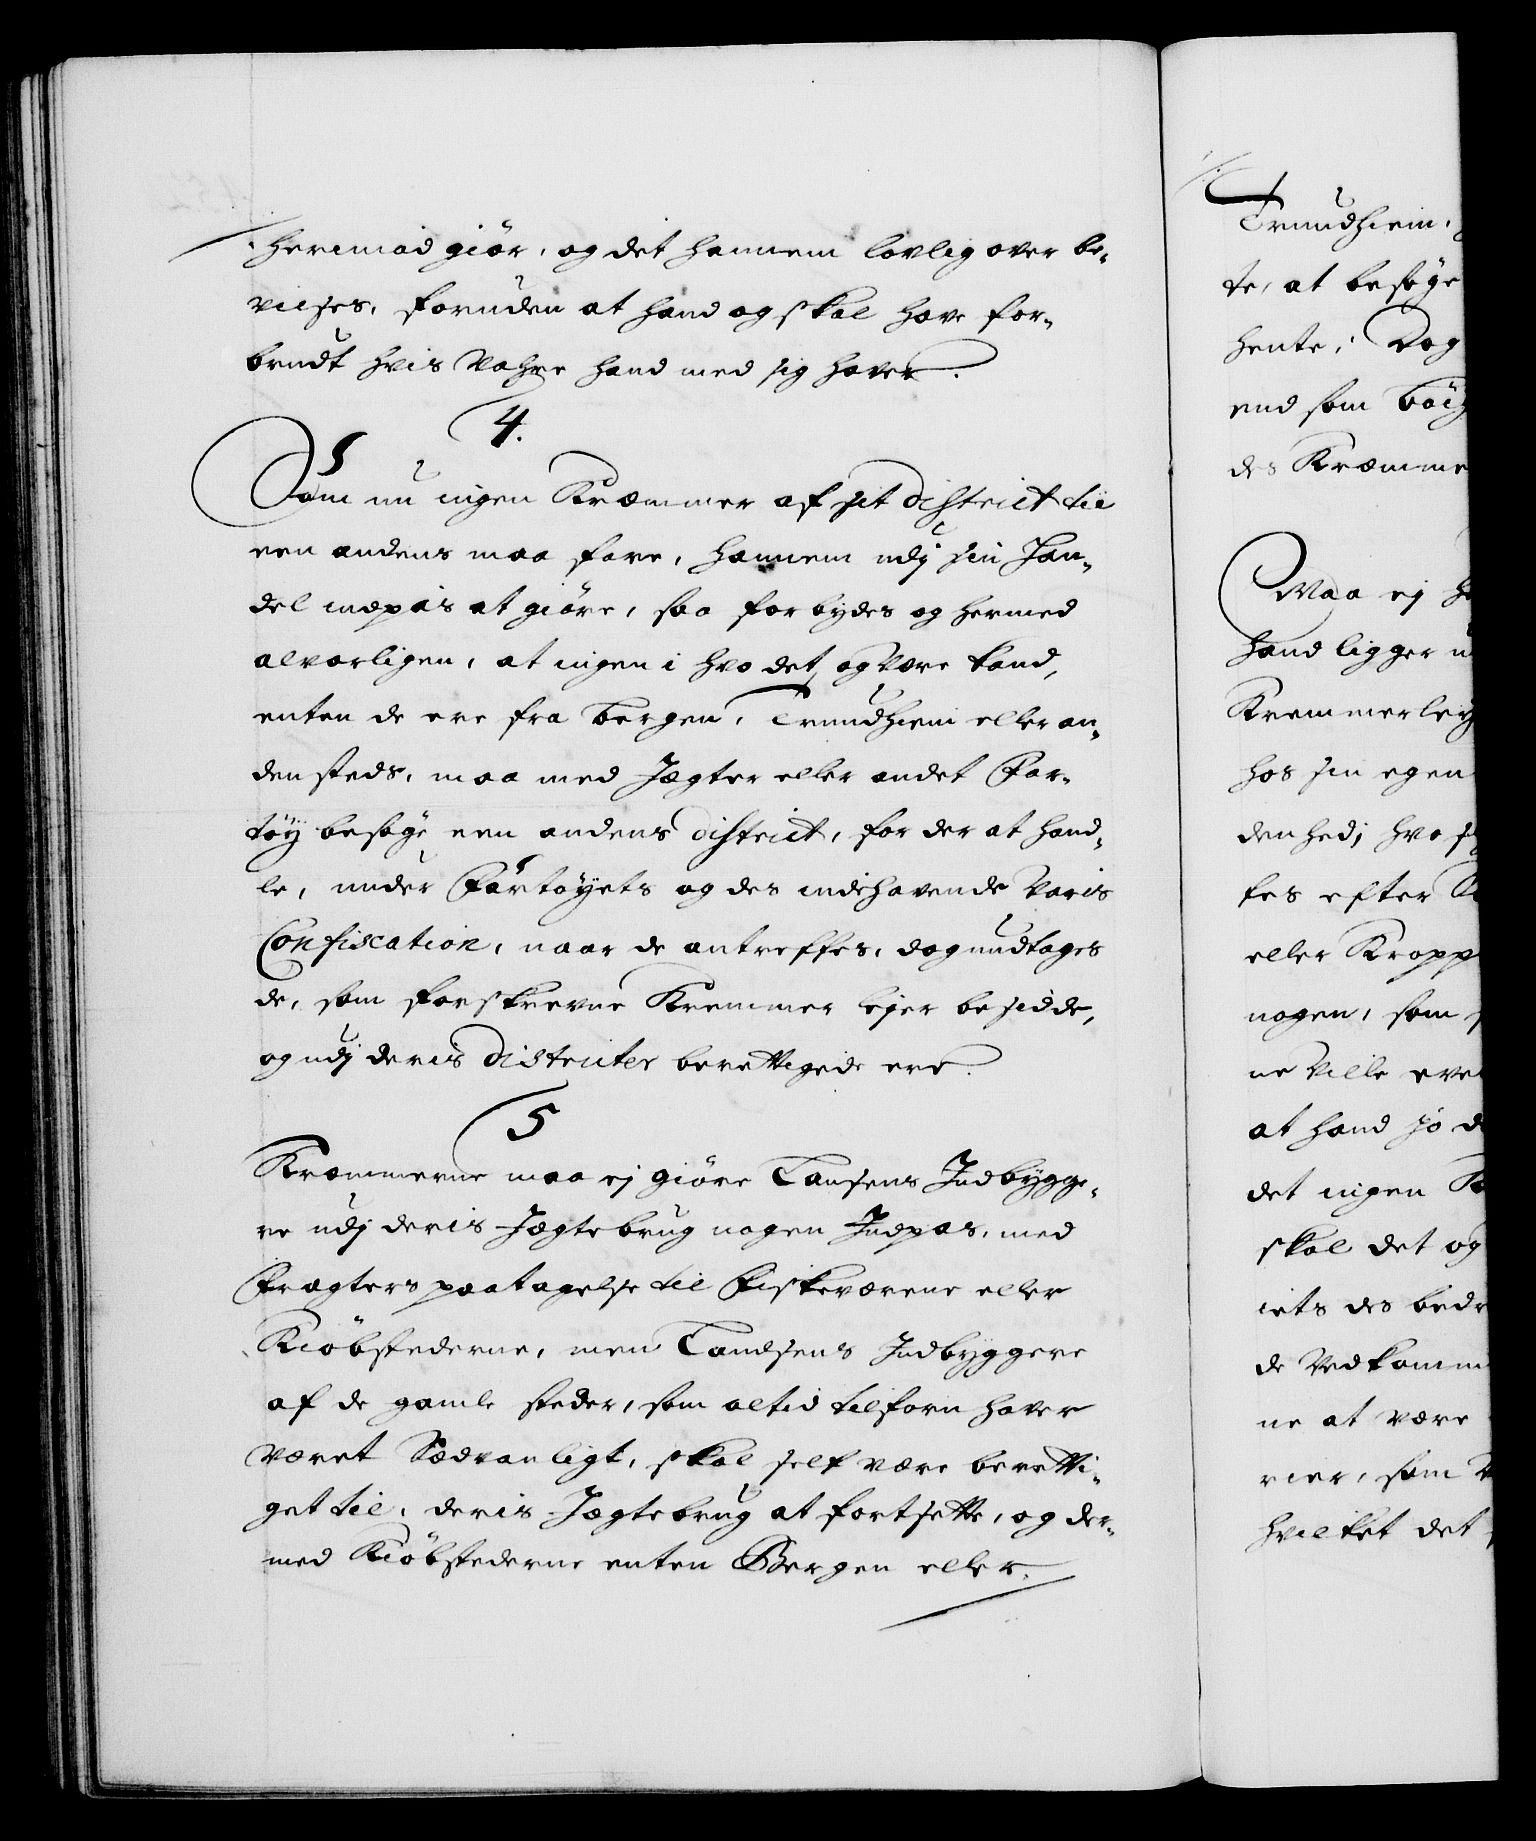 herimod giör, og det hannem lovlig over be-
vilses, foruden at hand og skal have for-
brudt hvis Vahre hand med sig haver.
4.
Som nu ingen Kræmmer af sit District til
een andens maa fare, hannem udj sin Han-
del indpas at giöre, saa forbydes og hermed
alvorligen, at ingen i hvo det og være kand,
enten de ere fra Bergen, Trundhiem eller an-
den steds, maa med Jægter eller andet Far-
töy besøge een andens District, for der at hand-
le, under Fartöyets og des indehavende Varis
Confiscation, naar de antreffes, dog undtages
de, som forskrevne Kremmer lejer besidde,
og udj deris Districter berettigede ere.
5
Kræmmerne maa ej giöre Landsens Indbygge-
re udj deris Jægtebrug nogen Indpas, med
Fragters paatagelse til Fiskeværene eller
Kiöbstederne, men Landsens Indbyggere
af de gamle steder, som altid tilforn haver
været Sædvanligt, skal self være beretti-
get til, deris Jægtebrug at fortsette, og der-
med Kiöbstederne enten Bergen eller
Trundhiem,
te, at besøge
hente; Dog
end som
des Kræmme
Maa ej
hand ligger
Kremmerley
hos sin egen
denhedj hvo
tes efter
eller Kropp
nogen, som
ne Ville
at hand jo
det ingen
skal det og
iets des bedr
de Vedkomm
ne at være
rier, som
hvilket det